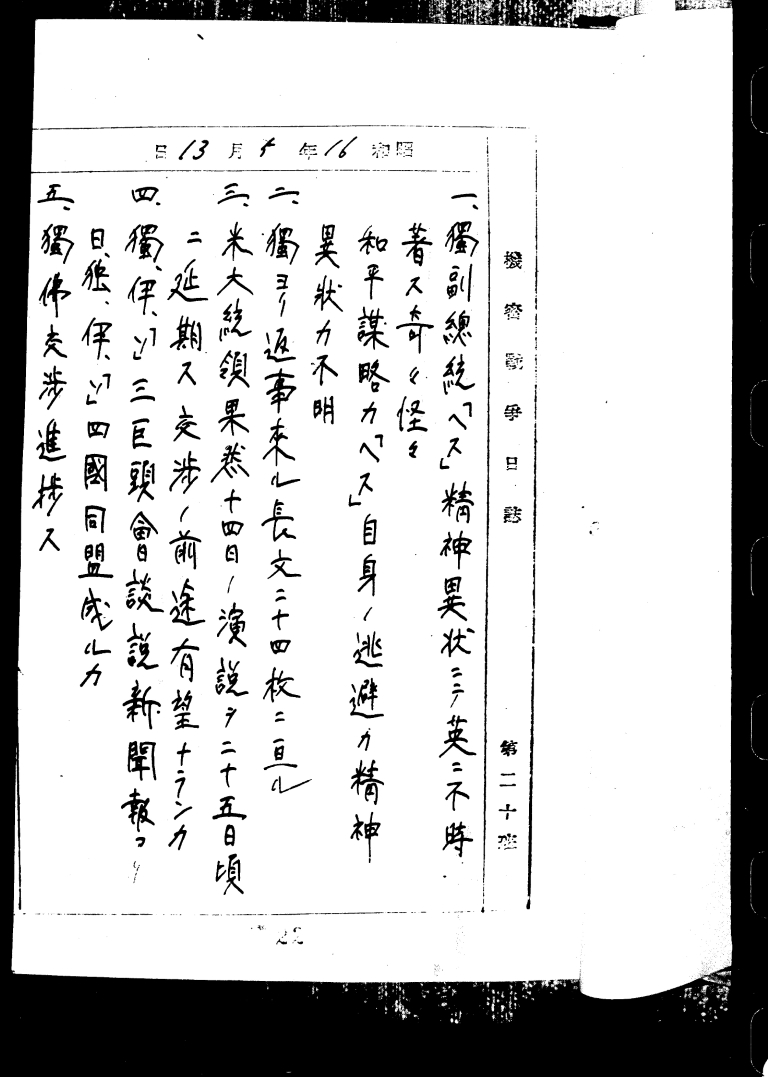 機密戰爭日誌
第二十班
昭和16年5月13日
一、獨副總統「ヘス」精神異状ニテ英ニ不時
著ス奇々怪々
和平謀略カ「ヘス」自身ノ逃避カ精神
異状カ不明
二、獨ヨリ返事來ル長文二十四枚ニ亘ル
三、米大統領果然十四日ノ演説ヲ二十五日頃
ニ延期ス交渉ノ前途有望ナランカ
四、獨、伊、「ソ」三巨頭會談説新聞報コリ
日、獨、伊、「ソ」四國同盟成ルカ
五、獨佛交渉進捗ス
22